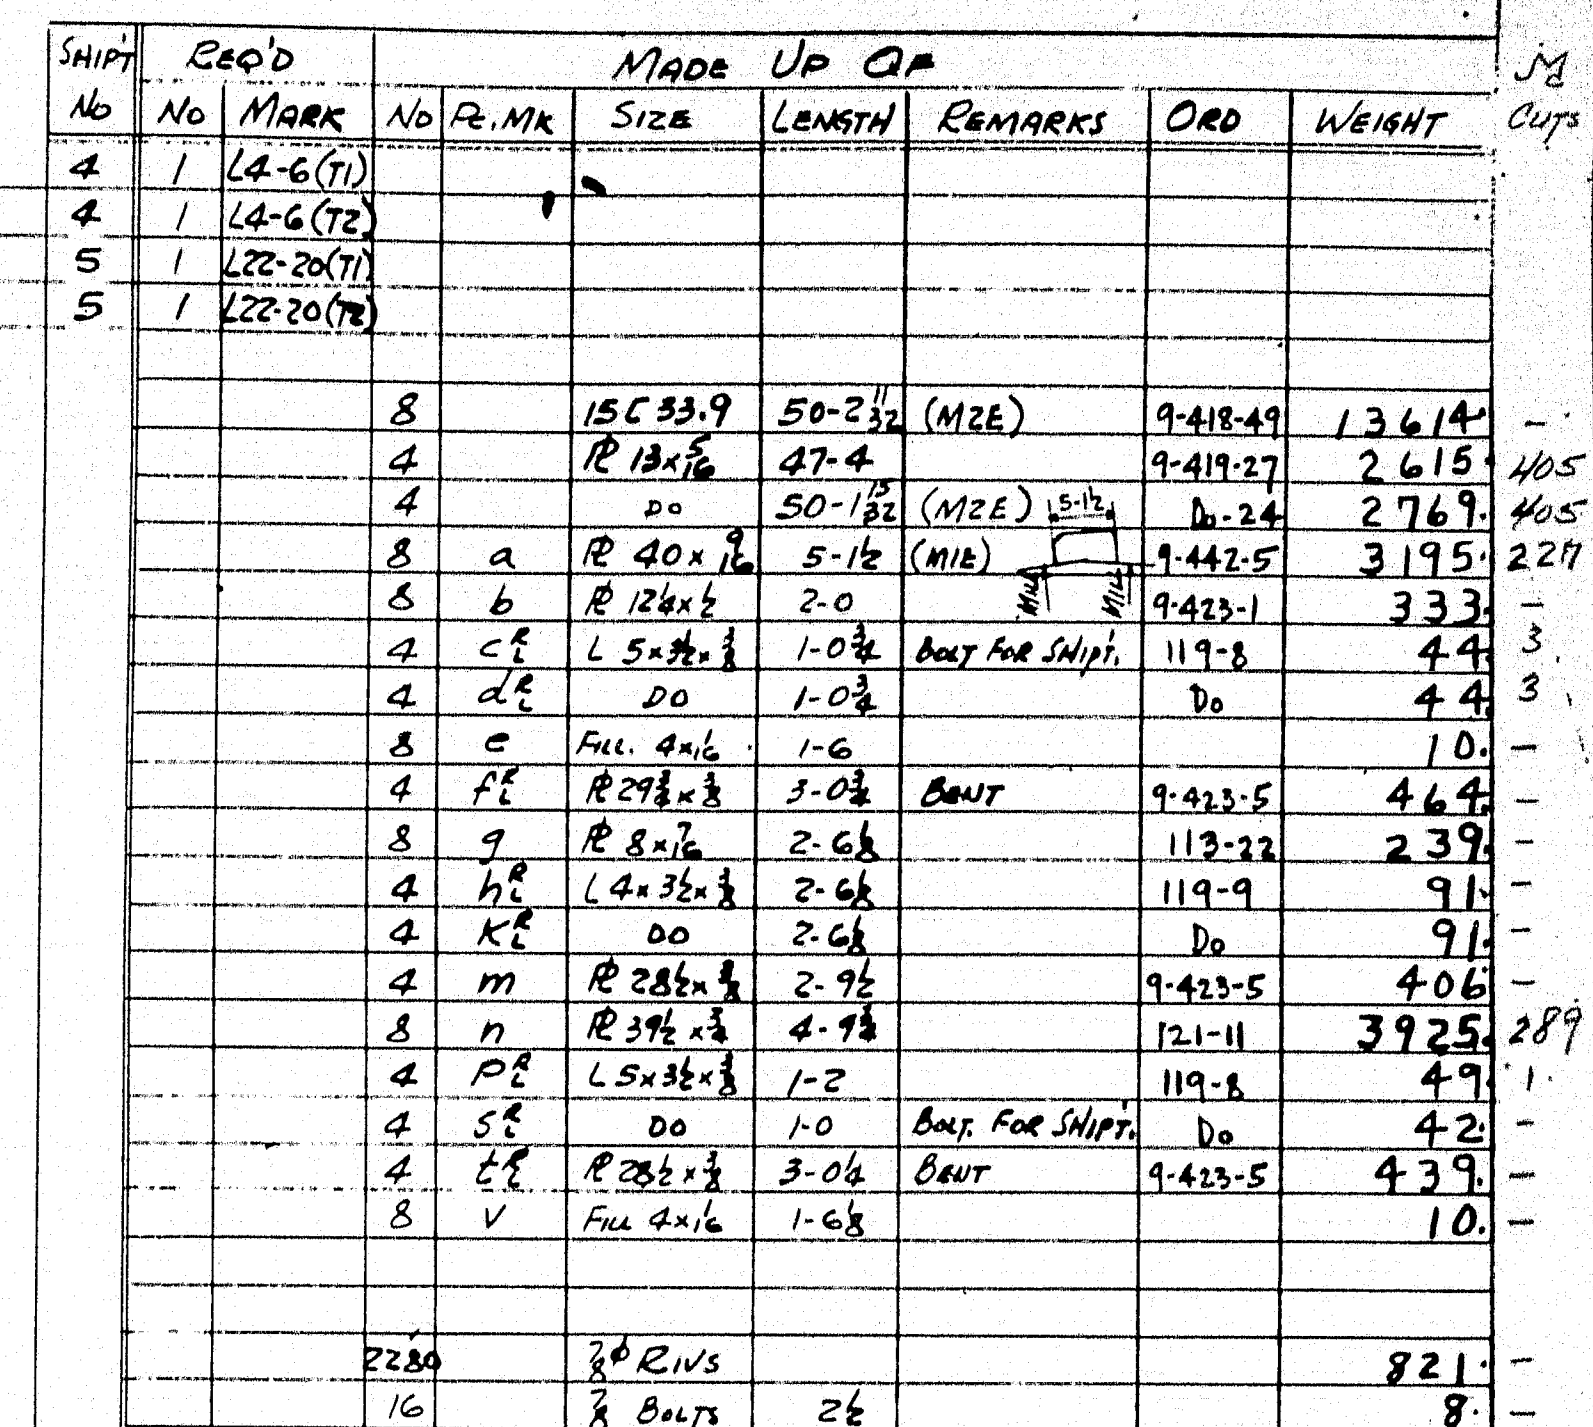 SHIP'T REQ'D MADE UP OF M
No No MARK No PC.MK SIZE LENGTH REMARKS ORD WEIGHT CUTS
4 1 L4-6(T1)
4 1 L4-6(T2)
5 1 L22-20(T1)
5 1 L22-20(T2)
8 15[33.9 50-2 11/32 (M2E) 9-418-49 13614. -
4 PL 13x5/16 47-4 9-419-27 2615. 405
4 DO 50-1 15/32 (M2E) 5-1½ Do-24 2769. 405
8 a PL 40x9/16 5-1½ (M1E) 9-442-5 3195. 227
8 b PL 12¼x½ 2-0 MILL MILL 9-423-1 333. -
4 c R/L L 5x3½x3/8 1-0¾ BOLT FOR SHIP'T. 119-8 44. 3
4 d R/L DO 1-0¾ Do 44. 3
8 e FILL. 4x1/16 1-6 10. -
4 f R/L PL 29¾x3/8 3-0¾ BENT 9-423-5 464. -
8 g PL 8x7/16 2-6⅛ 113-22 239. -
4 h R/L L 4x3½x3/8 2-6⅛ 119-9 91. -
4 K R/L DO 2-6⅛ Do 91. -
4 m PL 28½x3/8 2-9½ 9-423-5 406 -
8 n PL 39½x¾ 4-9¾ 121-11 3925. 289
4 P R/L L 5x3½x3/8 1-2 119-8 49. 1.
4 S R/L DO 1-0 BOLT. FOR SHIP'T. Do 42. -
4 t R/L PL 28½x3/8 3-0¼ BENT 9-423-5 439. -
8 V FILL 4x1/16 1-6⅛ 10. -
2280 7/8ϕ RIVS 821. -
16 7/8 BOLTS 2½ 8. -